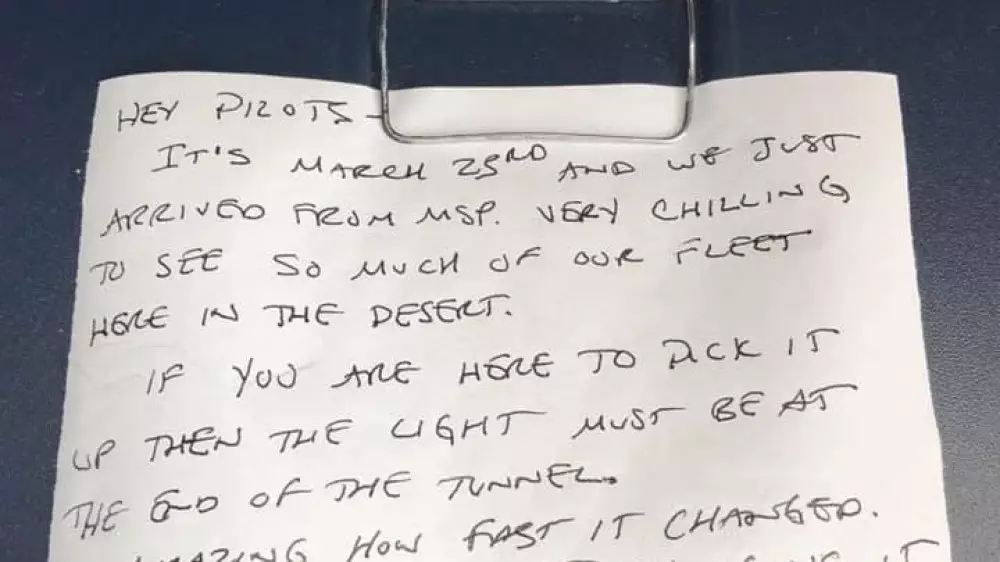 HEY PILOTS-
IT'S MARCH 23RD AND WE JUST
ARRIVED FROM MSP. VERY CHILLING
TO SEE SO MUCH OF OUR FLEET
HERE IN THE DESERT.
IF YOU ARE HERE TO PICK IT
UP THEN THE LIGHT MUST BE AT
THE END OF THE TUNNEL.
HOW FAST IT CHANGED.
IT